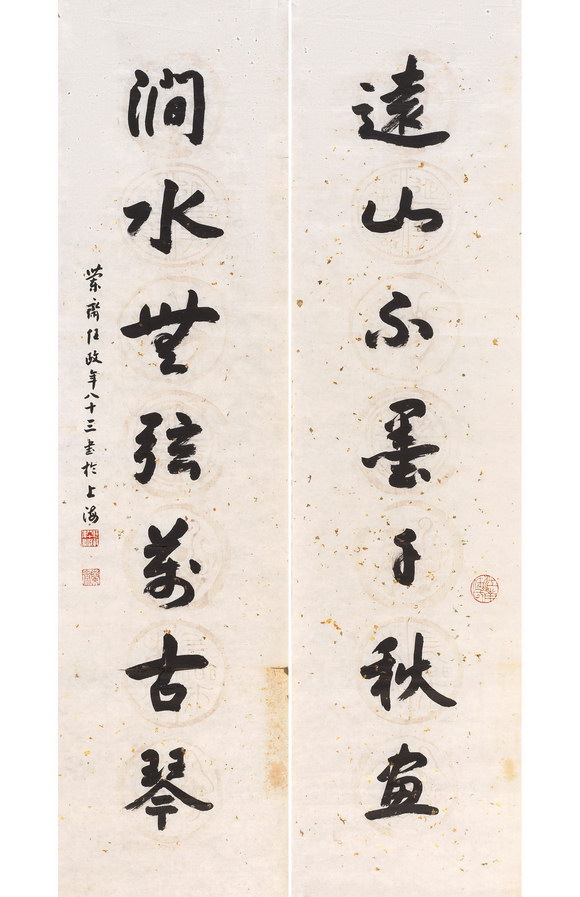 遠山不墨千秋畫
澗水無弦萬古琴
蘭齋任政年八十三書於上海